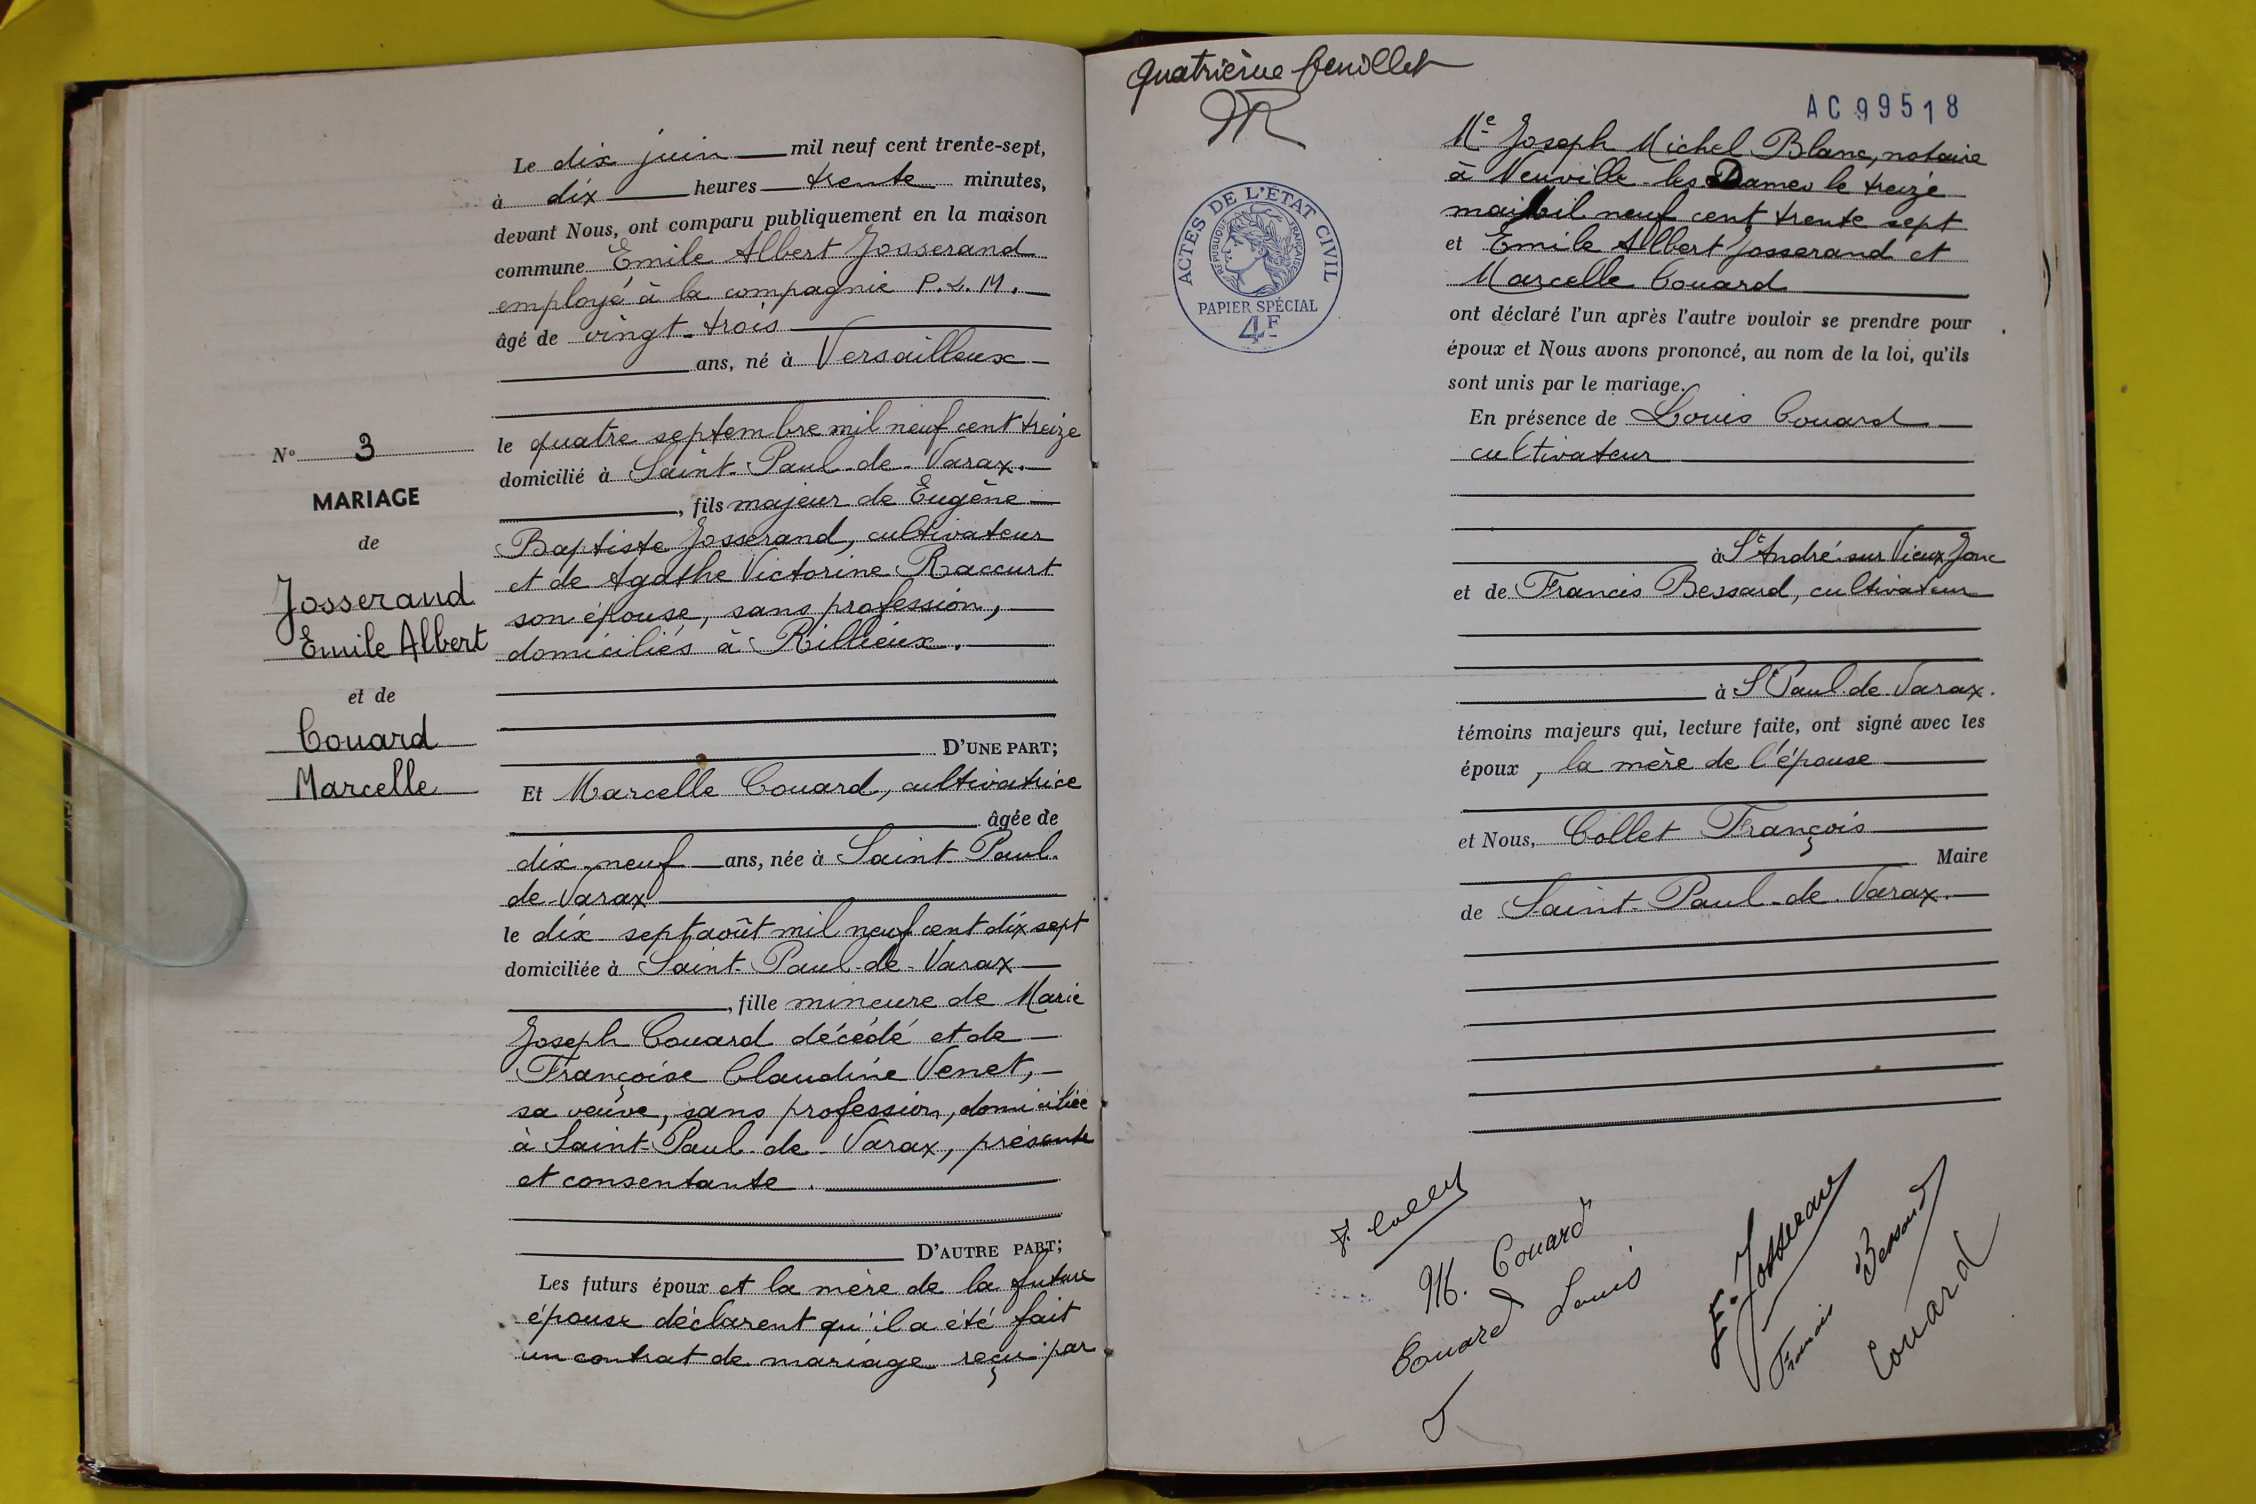 Le dix juin mil neuf cent trente-sept,
à dix heures trente minutes,
devant Nous, ont comparu publiquement en la maison
commune Emile Albert Josserand
employé à la compagnie P.L.M.
âgé de vingt-trois
ans, né à Versailleux
le quatre septembre mil neuf cent treize
domicilié à Saint-Paul-de-Varax.
, fils majeur de Eugène
Baptiste Josserand, cultivateur
et de Agathe Victorine Raccurt
son épouse, sans profession,
domiciliés à Rillieux.
D'UNE PART;
N° 3
MARIAGE
de
Josserand
Emile Albert
et de
Couard
Marcelle
Et Marcelle Couard, cultivatrice
âgée de
dix-neuf ans, née à Saint-Paul-
de-Varax
le dix-sept août mil neuf cent dix sept
domiciliée à Saint-Paul-de-Varax
, fille mineure de Marie
Joseph Couard décédé et de
Françoise Claudine Venet,
sa veuve, sans profession, domiciliée
à Saint-Paul-de-Varax, présente
et consentante.
D'AUTRE PART;
Les futurs époux et la mère de la future
épouse déclarent qu'il a été fait
un contrat de mariage reçu par
Quatrième feuillet
AC 99518
ACTES DE L'ETAT CIVIL
REPUBLIQUE FRANÇAISE
PAPIER SPÉCIAL
4F
Me Joseph Michel Blanc, notaire
à Neuville-les-Dames le treize
mai mil neuf cent trente sept
et Emile Albert Josserand et
Marcelle Couard
ont déclaré l'un après l'autre vouloir se prendre pour
époux et Nous avons prononcé, au nom de la loi, qu'ils
sont unis par le mariage.
En présence de Louis Couard
cultivateur
à St André-sur-Vieux-Jonc
et de Francis Bessard, cultivateur
à St Paul-de-Varax.
témoins majeurs qui, lecture faite, ont signé avec les
époux, la mère de l'épouse
et Nous, Collet François
Maire
de Saint-Paul-de-Varax.
F. Collet
M. Couard
Couard Louis
E. Josserand
Francis Bessard
Couard